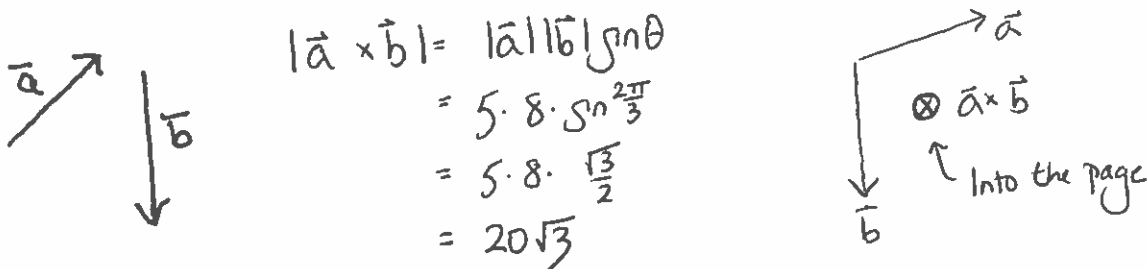 a⃗
b⃗
|a⃗ × b⃗| = |a⃗||b⃗| sin θ
= 5 · 8 · sin 2π/3
= 5 · 8 · √3/2
= 20√3
a⃗
⊗ a⃗ × b⃗
Into the page
b⃗